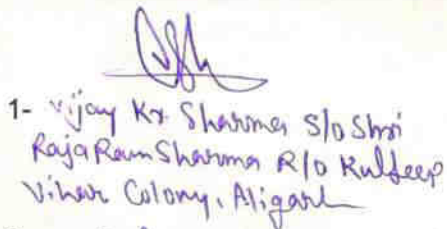 1- Vijay Kr. Sharma S/o Shri
Raja Ram Sharma R/o Kuldeep
Vihar Colony, Aligarh